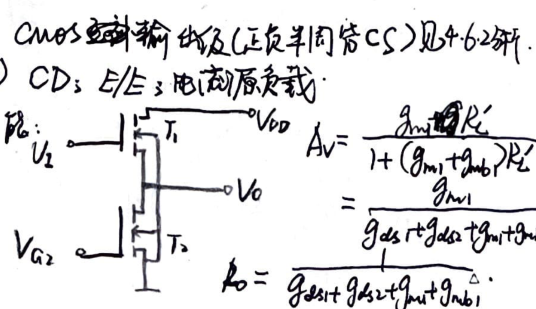 CMOS 输出级(正负半周皆CS)见4.6.2分析.
) CD; E/E; 电流源负载.
U_I
T_1
V_DD
V_O
V_G2
T_2
A_V = g_m1 R_L' / 1+(g_m1+g_mb1)R_L'
= g_m1 / g_ds1+g_ds2+g_m1+g_m
R_o = 1 / g_ds1+g_ds2+g_m1+g_mb1.